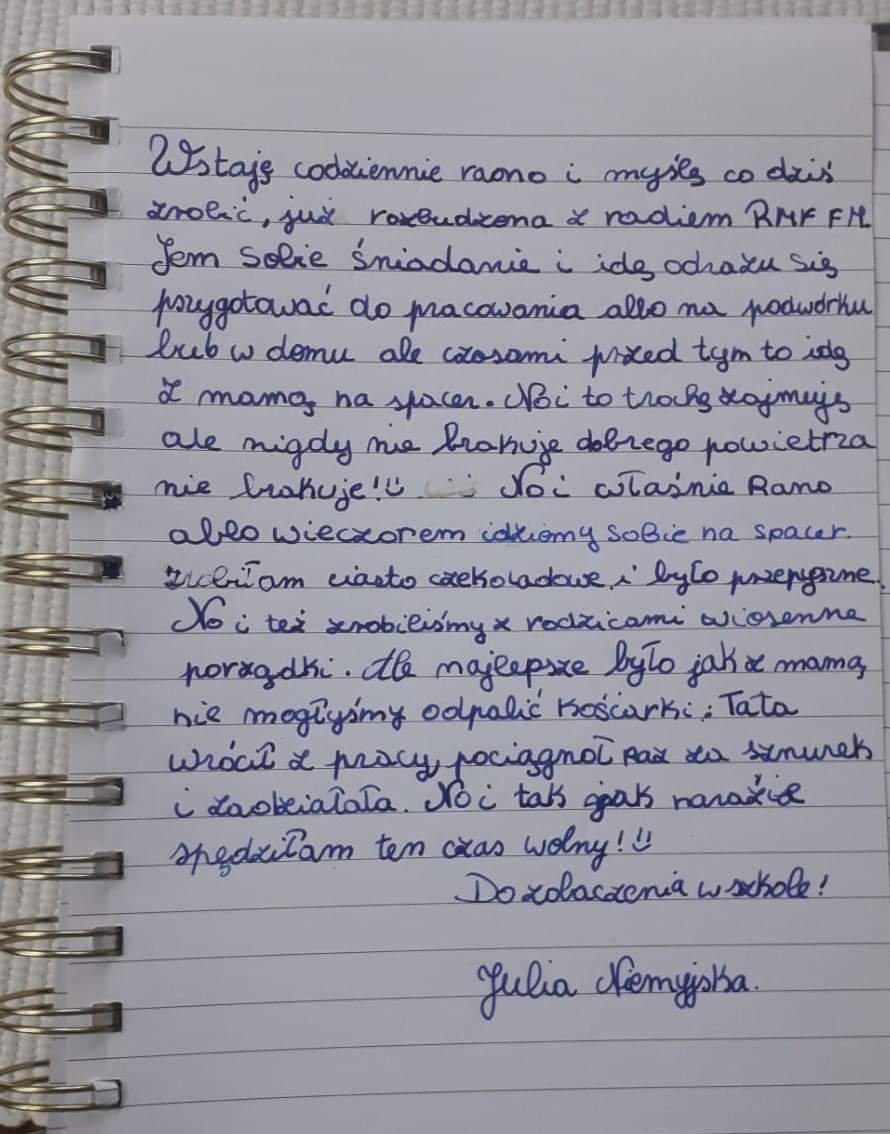 Wstaję codziennie raono i myślę co dziś
zrobić, już rozbudzona z radiem RMF FM.
Jem sobie śniadanie i idę odrazu się
przygotować do pracowania albo na podwórku
lub w domu ale czasami przed tym to idę
z mamą na spacer. No i to trochę zajmuję
ale nigdy nie brakuje dobrego powietrza
nie brakuje! No i właśnie Rano
albo wieczorem idziemy sobie na spacer.
zrobiłam ciasto czekoladowe i było przepyszne.
No i też zrobiliśmy z rodzicami wiosenne
porządki. Ale najlepsze było jak z mamą
nie mogłyśmy odpalić kosiarki; Tata
wrócił z pracy, pociągnoł raz za sznurek
i zadziałała. No i tak jak narazie
spędziłam ten czas wolny!
Do zobaczenia w szkole!
Julia Niemyjska.